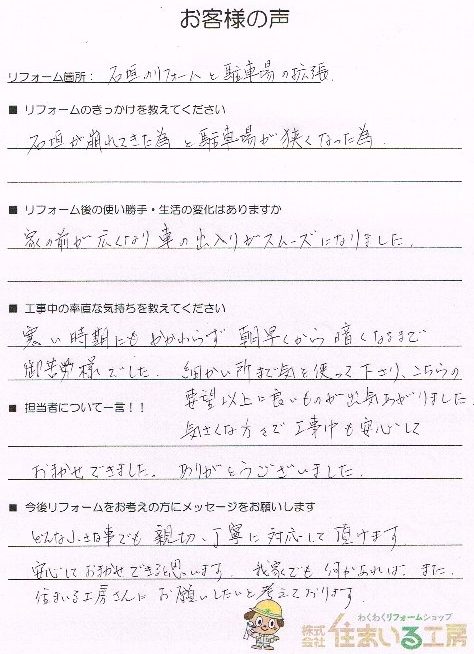 お客様の声
リフォーム箇所： 石垣のリフォームと駐車場の拡張.
■ リフォームのきっかけを教えてください
石垣が崩れてきた為 と駐車場が狭くなった為.
■ リフォーム後の使い勝手・生活の変化はありますか
家の前が広くなり 車の出入りがスムーズになりました.
■ 工事中の率直な気持ちを教えてください
寒い時期にもかかわらず 朝早くから暗くなるまで
御苦労様でした. 細かい所まで気を使って下さり、こちらの
要望以上に良いものが出来あがりました.
■ 担当者について一言！！
気さくな方々で工事中も安心して
おまかせできました. ありがとうございました.
■ 今後リフォームをお考えの方にメッセージをお願いします
どんな小さな事でも 親切、丁寧に対応して頂けます
安心しておまかせできると思います. 我家でも何かあれば、また.
住まいる工房さんにお願いしたいと考えております.
わくわくリフォームショップ
株式会社 住まいる工房